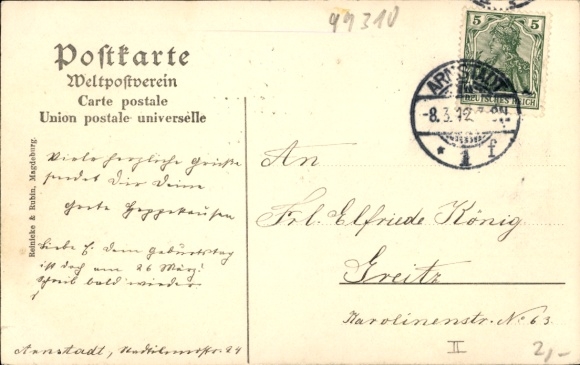 99310
Postkarte
Weltpostverein
Carte postale
Union postale universelle
5 5
DEUTSCHES REICH
ARNSTADT
-8.3.12
* 1 f
Reinicke & Rubin, Magdeburg.
Viele herzliche Grüße
sendet Dir Deine
Grete
Liebe E. dein Geburtstag
ist doch am 26 März!
Schreib bald wieder
Arnstadt,
An
Frl. Elfriede König
Greitz
Karolinenstr. No 63.
II
2,-